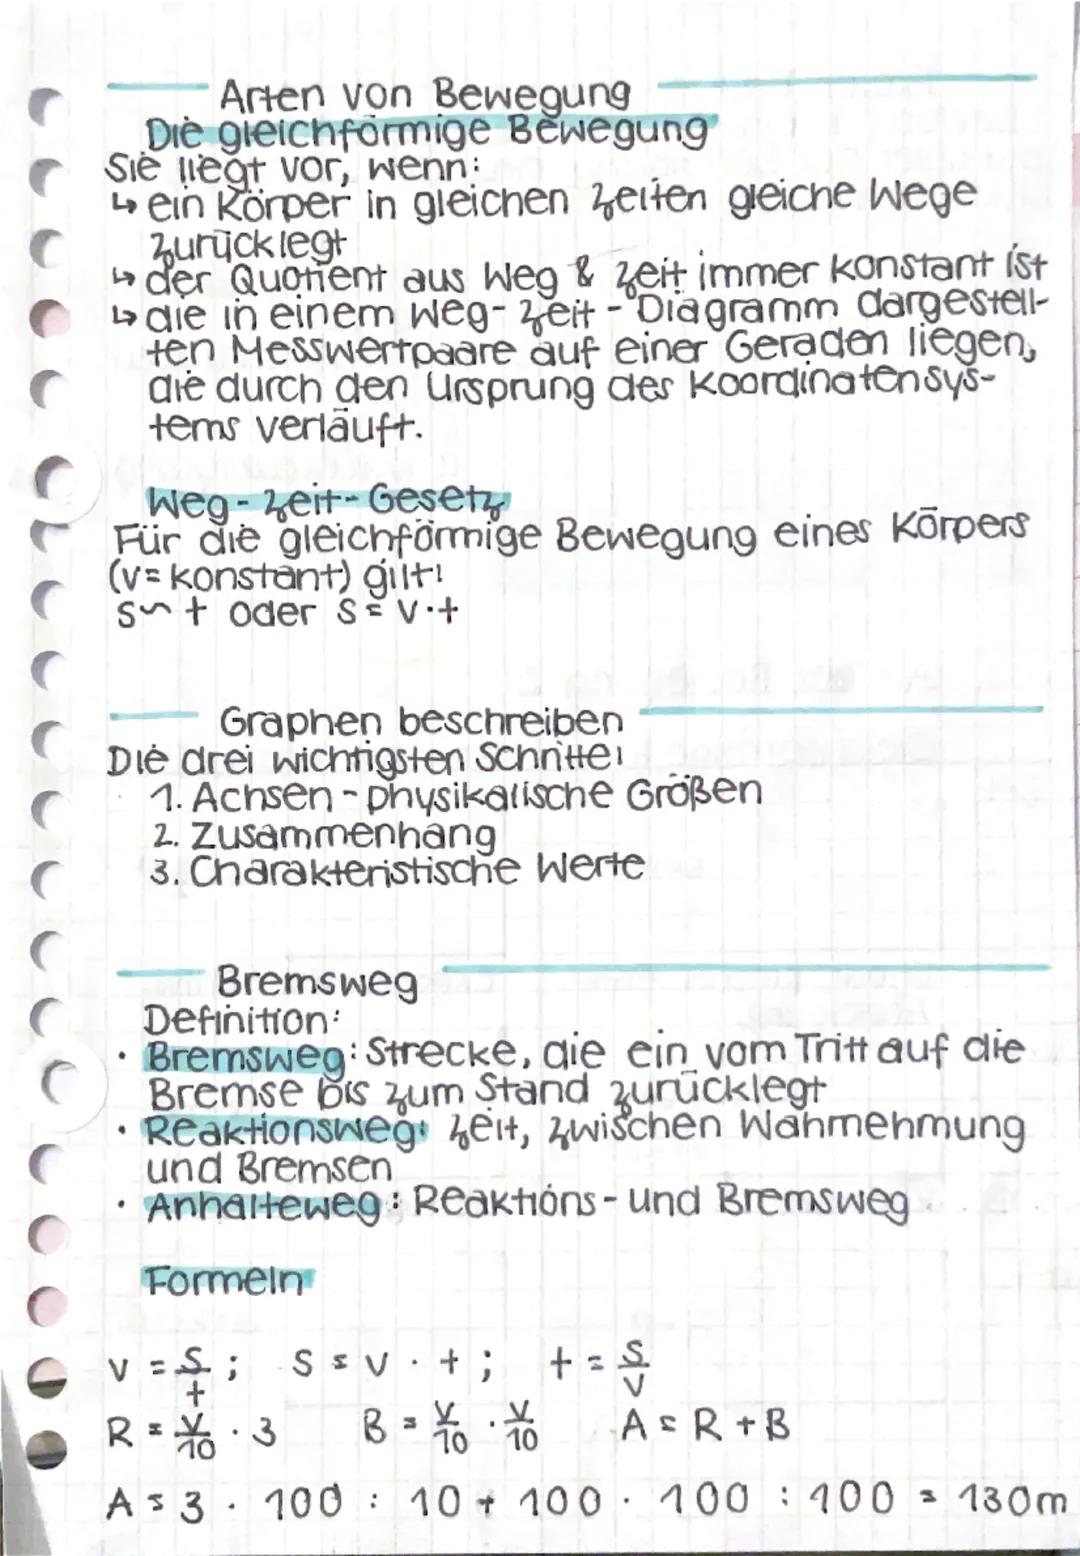 Arten von Bewegung
Die gleichförmige Bewegung
Sie liegt vor, wenn:
↳ ein Körper in gleichen Zeiten gleiche Wege
zurücklegt
↳ der Quotient aus Weg & Zeit immer konstant ist
↳ die in einem Weg-Zeit-Diagramm dargestell-
ten Messwertpaare auf einer Geraden liegen,
die durch den Ursprung des Koordinatensys-
tems verläuft.
Weg-Zeit-Gesetz
Für die gleichförmige Bewegung eines Körpers
(v=konstant) gilt:
s~t oder s=v·t
Graphen beschreiben
Die drei wichtigsten Schritte:
1. Achsen - physikalische Größen
2. Zusammenhang
3. Charakteristische Werte
Bremsweg
Definition:
· Bremsweg: Strecke, die ein vom Tritt auf die
Bremse bis zum Stand zurücklegt
· Reaktionsweg: Zeit, zwischen Wahrnehmung
und Bremsen
· Anhalteweg: Reaktions- und Bremsweg
Formeln
v = s/t ; s = v · t ; t = s/v
R = v/10 · 3 B = v/10 · v/10 A = R + B
A = 3 · 100 : 10 + 100 · 100 : 100 = 130m